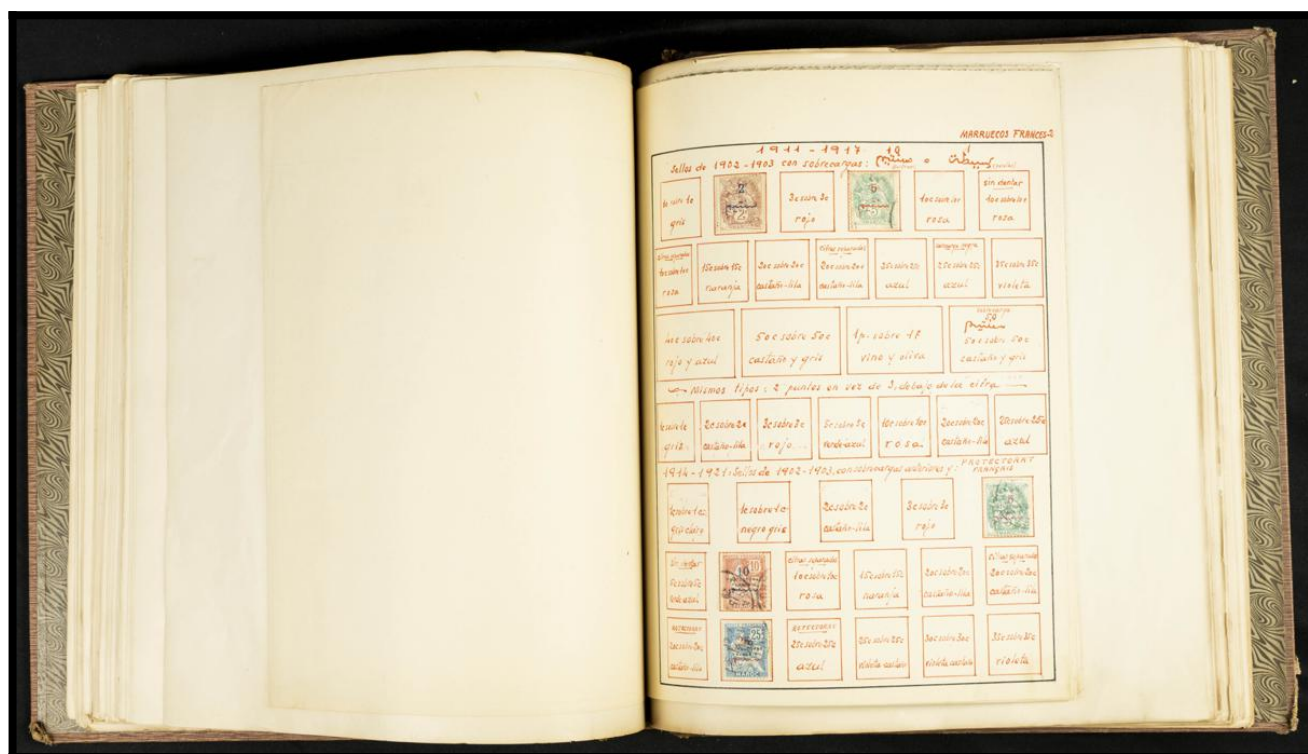 MARRUECOS FRANCES-2
1911 - 1917
Sellos de 1902-1903 con sobrecargas: o
1c sobre 1c gris
2
2
3c sobre 3c rojo
5
5
10c sobre 10c rosa
sin dentar 10c sobre 10c rosa
cifras separadas 10c sobre 10c rosa
15c sobre 15c naranja
20c sobre 20c castaño-lila
cifras separadas 20c sobre 20c castaño-lila
25c sobre 25c azul
25c sobre 25c azul
35c sobre 35c violeta
40c sobre 40c rojo y azul
50c sobre 50c castaño y gris
1p. sobre 1f vino y oliva
50
50c sobre 50c castaño y gris
Mismos tipos: 2 puntos en vez de 3, debajo de la cifra
1c sobre 1c gris
2c sobre 2c castaño-lila
3c sobre 3c rojo
5c sobre 5c verde-azul
10c sobre 10c rosa
20c sobre 20c castaño-lila
25c sobre 25c azul
1914-1921: Sellos de 1902-1903, con sobrecargas anteriores y: PROTECTORAT FRANÇAIS
1c sobre 1c gris claro
1c sobre 1c negro gris
2c sobre 2c castaño-lila
3c sobre 3c rojo
sin dentar 5c sobre 5c verde-azul
10
10
cifras separadas 10c sobre 10c rosa
15c sobre 15c naranja
20c sobre 20c castaño-lila
cifras separadas 20c sobre 20c castaño-lila
20c sobre 20c castaño-lila
25
MAROC
25c sobre 25c azul
25c sobre 25c violeta
30c sobre 30c violeta
35c sobre 35c violeta